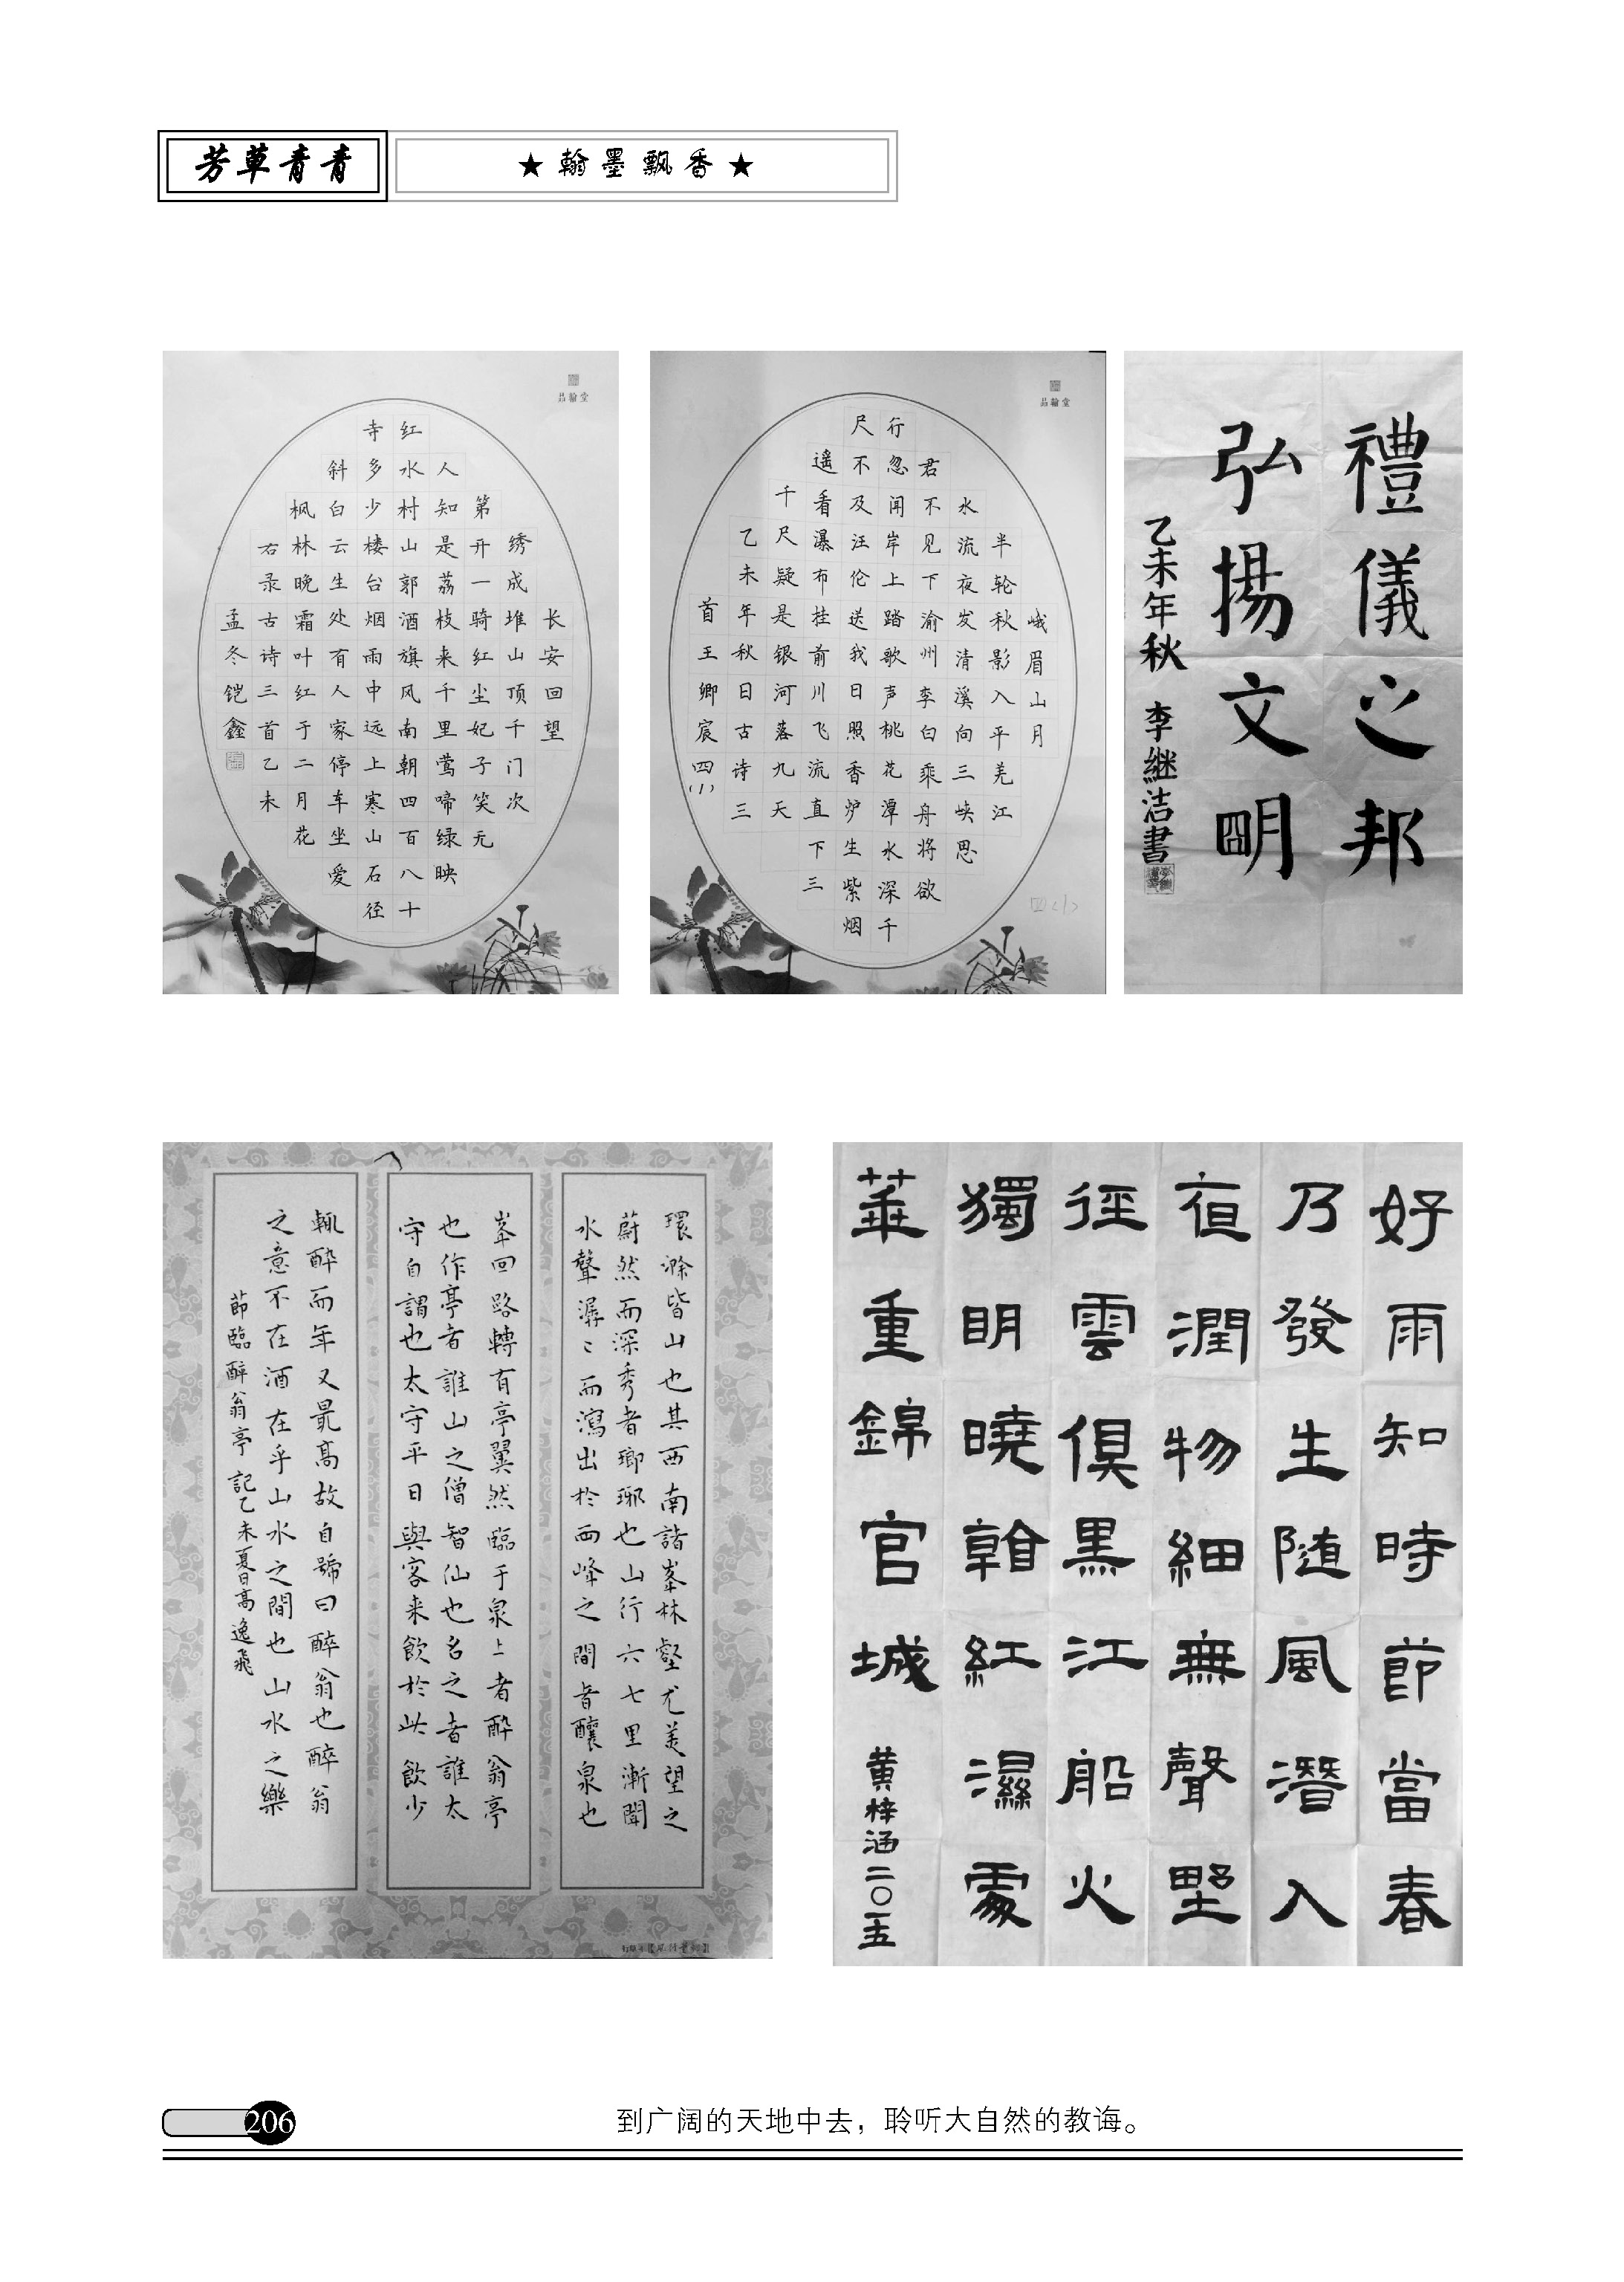 芳草青青
★翰墨飘香★
品翰堂
长安回望
绣成堆山顶千门次
第开一骑红尘妃子笑无
人知是荔枝来千里莺啼绿映
红水村山郭酒旗风南朝四百八十
寺多少楼台烟雨中远上寒山石径
斜白云生处有人家停车坐爱
枫林晚霜叶红于二月花
右录古诗三首乙未
孟冬铠鑫
品翰堂
峨眉山月
半轮秋影入平羌江
水流夜发清溪向三峡思
君不见下渝州李白乘舟将欲
行忽闻岸上踏歌声桃花潭水深千
尺不及汪伦送我日照香炉生紫烟
遥看瀑布挂前川飞流直下三
千尺疑是银河落九天
乙未年秋日古诗三
首王卿宸四(1)
四(1)
禮儀之邦
弘揚文明
乙未年秋 李继洁書
環滁皆山也其西南諸峯林壑尤美望之
蔚然而深秀者瑯琊也山行六七里漸聞
水聲潺〻而瀉出於两峰之間者釀泉也
峯回路轉有亭翼然臨于泉上者醉翁亭
也作亭者誰山之僧智仙也名之者誰太
守自謂也太守平日與客来飲於此飲少
輒醉而年又最高故自號曰醉翁也醉翁
之意不在酒在乎山水之間也山水之樂
節臨醉翁亭記乙未夏日高逸飛
好雨知時節當春
乃發生随風潛入
夜潤物細無聲野
徑雲俱黒江船火
獨明曉翰紅濕處
華重錦官城
黄梓涵二〇一五
206
到广阔的天地中去，聆听大自然的教诲。